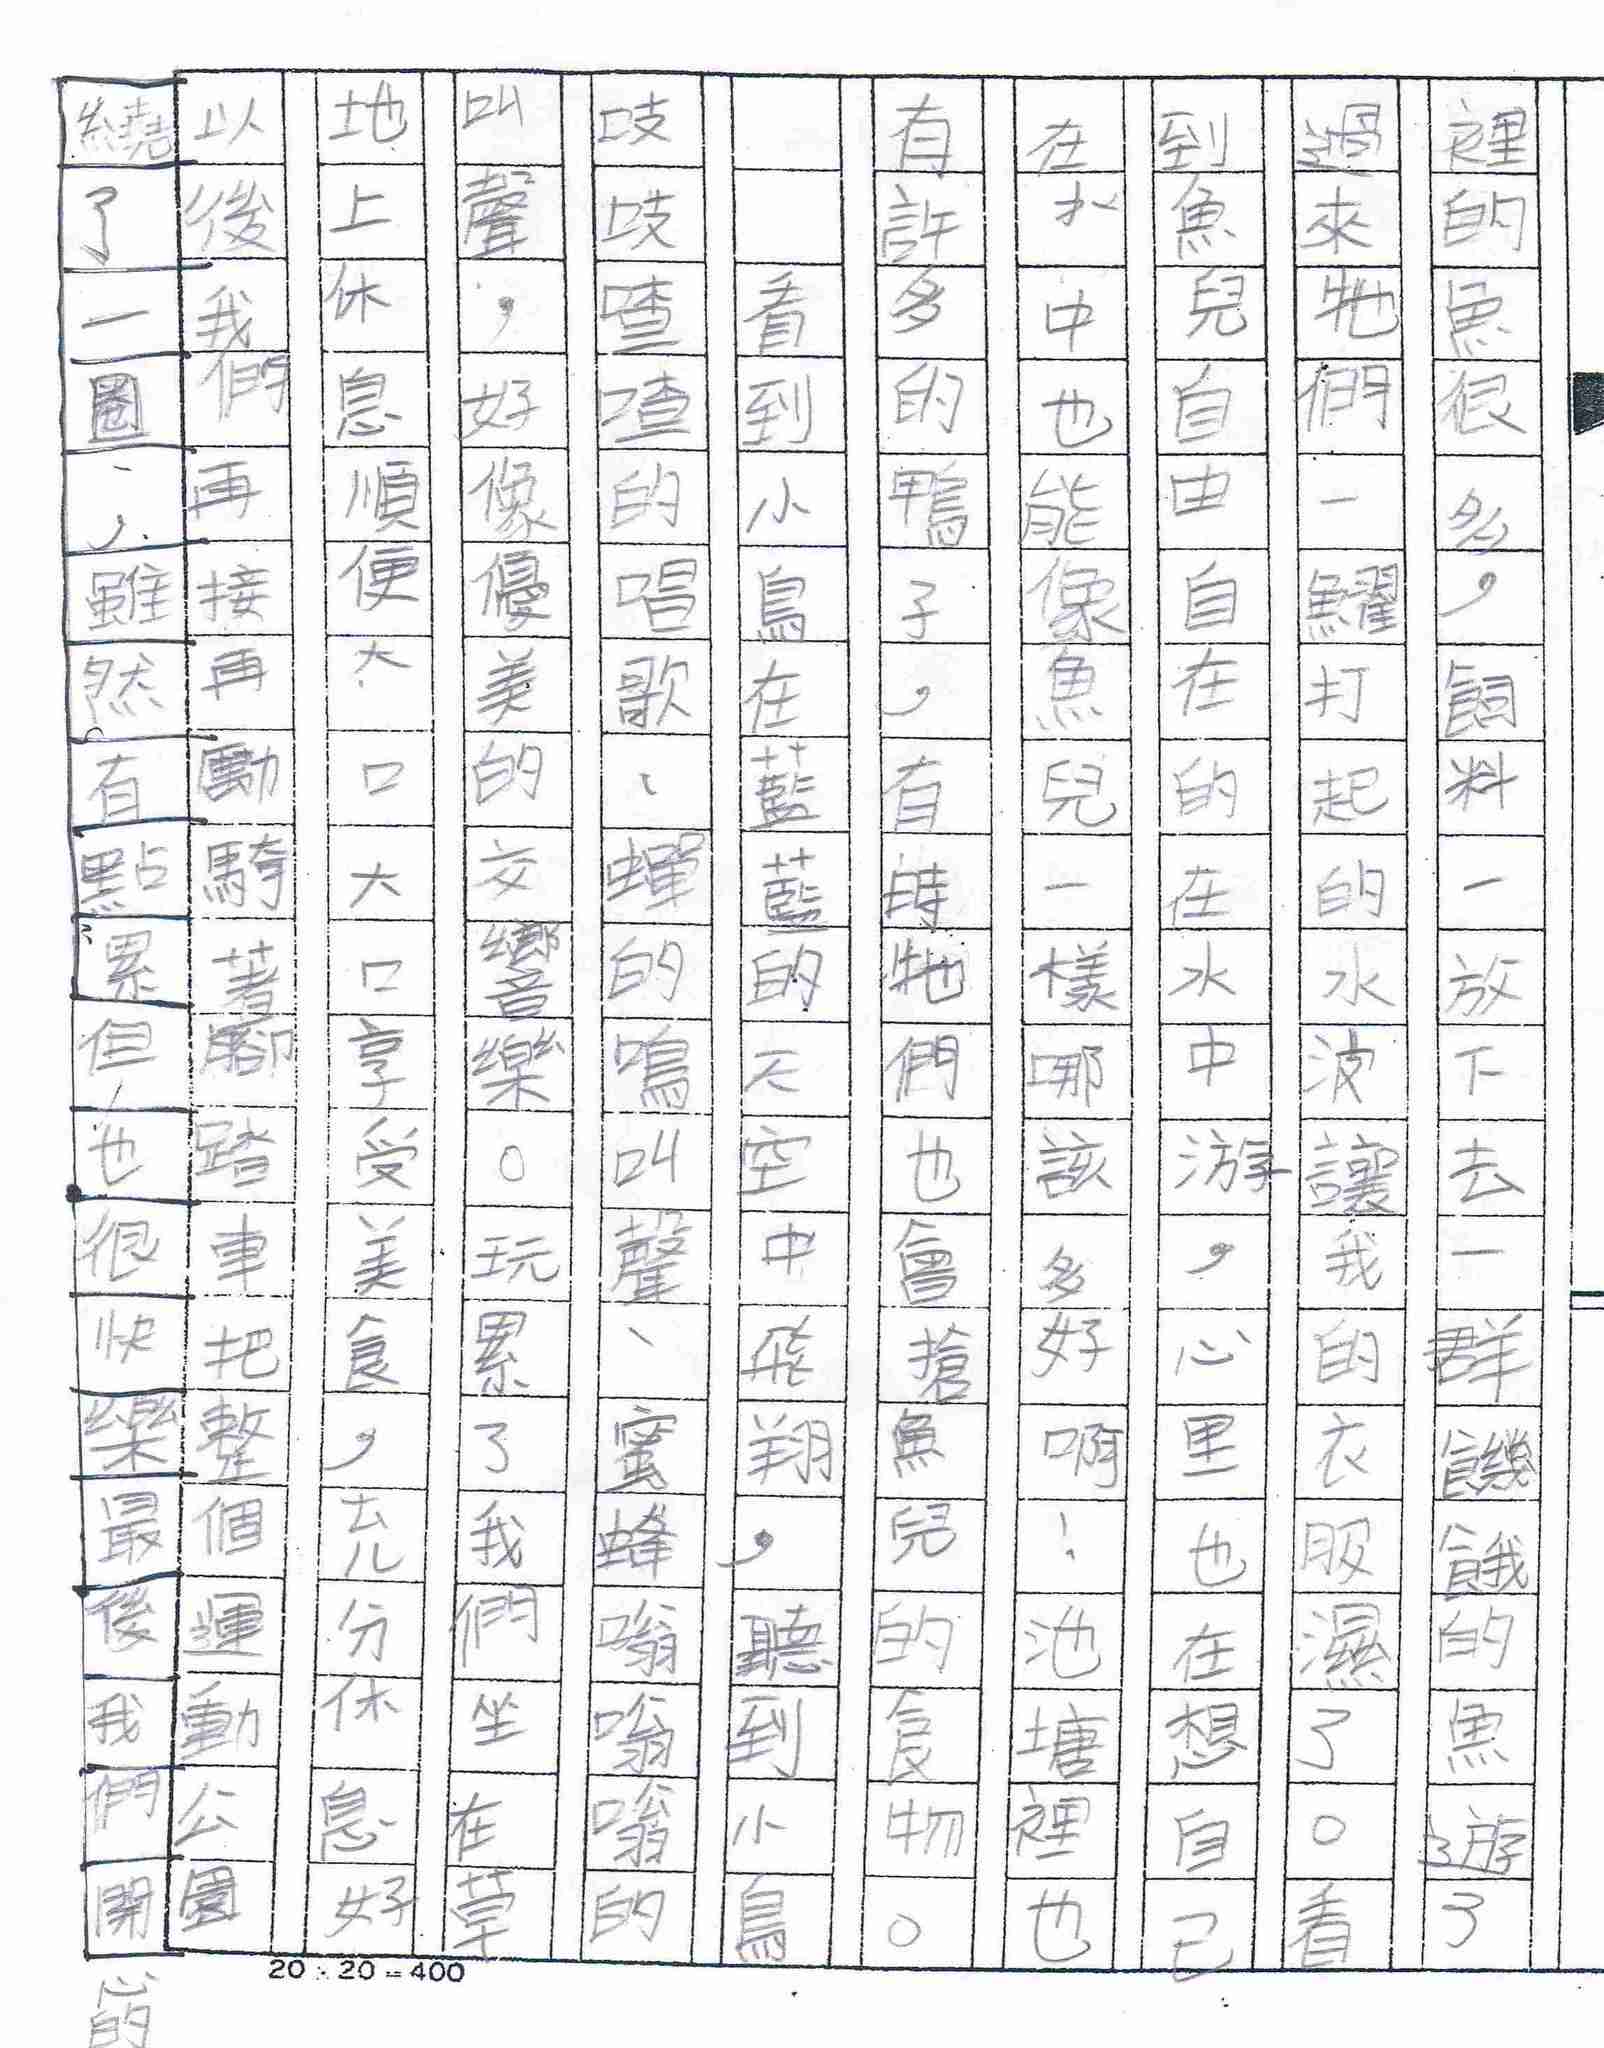 裡的魚很多，飼料一放下去一群饑餓的魚游了
過來牠們一躍打起的水波讓我的衣服濕了。看
到魚兒自由自在的在水中游，心里也在想自己
在水中也能像魚兒一樣哪該多好啊！池塘裡也
有許多的鴨子，有時牠們也會搶魚兒的食物。
看到小鳥在藍藍的天空中飛翔，聽到小鳥
吱吱喳喳的唱歌、蟬的鳴叫聲、蜜蜂嗡嗡嗡的
叫聲，好像優美的交響樂。玩累了我們坐在草
地上休息順便大口大口享受美食，充分休息好
以後我們再接再勵騎著腳踏車把整個運動公園
繞了一圈，雖然有點累但也很快樂最後我們開心的
20×20=400